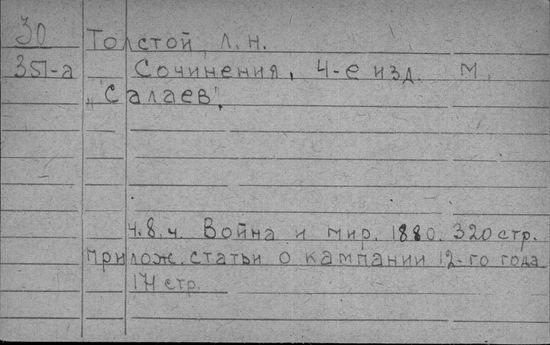 30 Толстой, Л. Н.
351-а Сочинения, 4-е изд. М.
„Салаев".
ч.8.ч. Война и мир. 1880. 320 стр.
прилож. статьи о кампании 12-го года
171 стр.